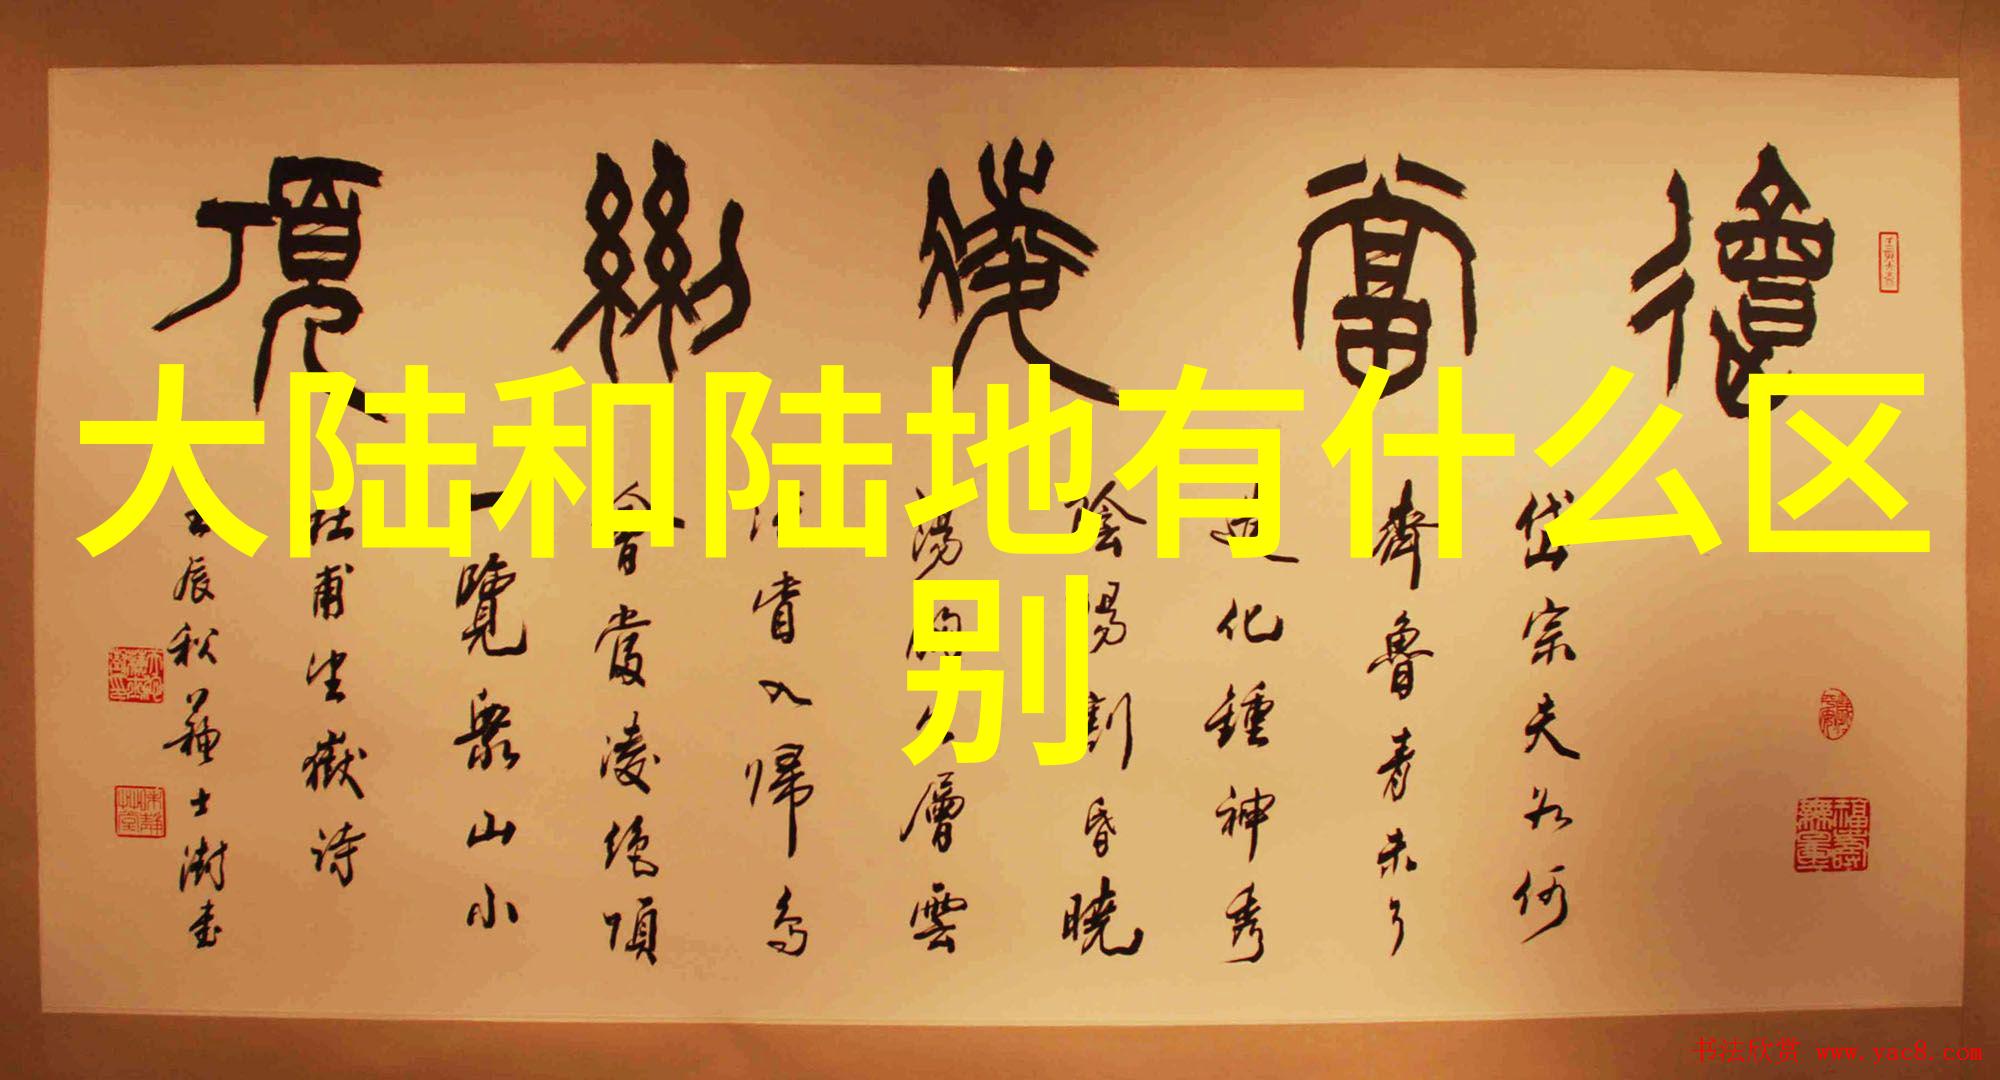 大陆和陆地有什么区
别
會當凌絕頂
岱宗夫如何
齊魯青未了
造化鍾神秀
陰陽割昏曉
蕩胸生層雲
眥入歸鳥
會當凌絕頂
一覽衆山小
杜甫望嶽詩
壬辰秋蘇士澍書
福壽無量
书法欣赏 www.yac8.com